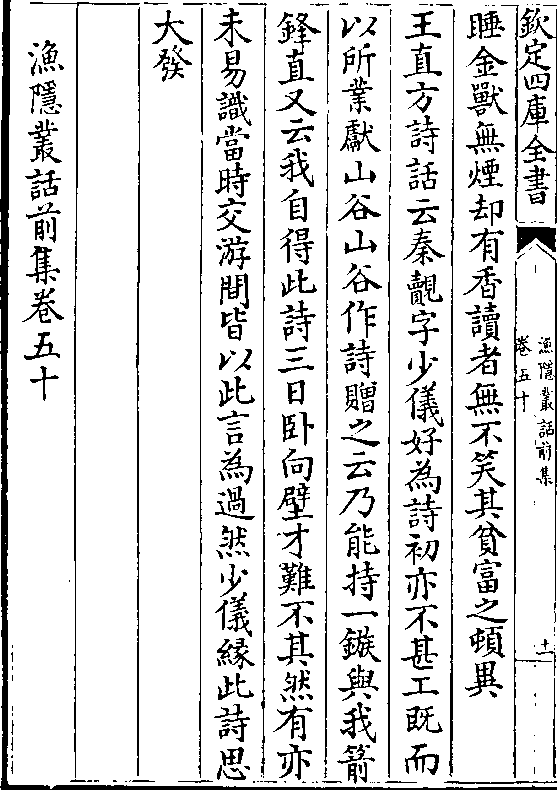 欽定四庫全書
漁隱叢話前集
卷五十
十一
睡金獸無煙却有香讀者無不笑其貧富之頓異
王直方詩話云秦覯字少儀好為詩初亦不甚工既而
以所業獻山谷山谷作詩贈之云乃能持一鏃與我箭
鋒直又云我自得此詩三日卧向壁才難不其然有亦
未易識當時交游間皆以此言為過然少儀緣此詩思
大發
漁隱叢話前集卷五十